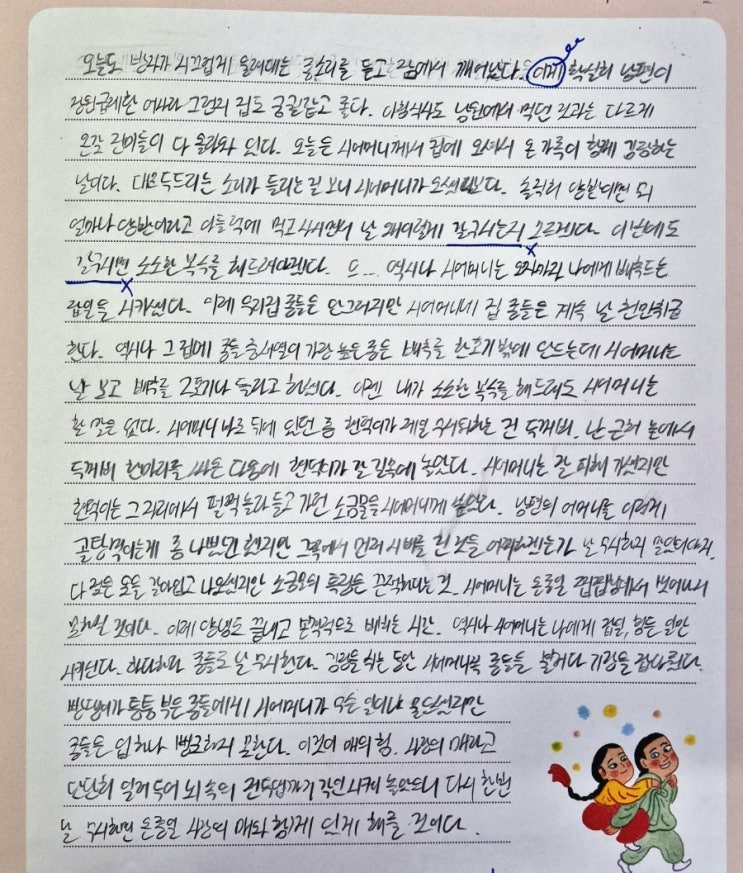 오늘도 방자가 시끄럽게 울려대는 종소리를 듣고 잠에서 깨어났다. 이게 확실히 남편이
장원급제한 여자라 그런지 집도 궁궐같고 좋다. 아침식사도 남원에서 먹던 것과는 다르게
온갖 진미들이 다 올라와 있다. 오늘은 시어머니께서 집에 오셔서 온 가족이 함께 김장하는
날이다. 대문 두드리는 소리가 들리는걸 보니 시어머니가 오셨나보다. 솔직히 양반이면 뭐
얼마나 양반이라고 아들덕에 먹고 사시면서 날 왜이렇게 갈구시는지 모르겠다. 이번에도
갈구시면 소소한 복수를 해드려야겠다. 또... 역시나 시어머니는 오자마자 나에게 배추드는
잡일을 시키셨다. 이제 우리집 종들은 안그러지만 시어머니네 집 종들은 계속 날 천민취급
한다. 역시나 그 집에 종들 중 서열이 가장 높은 종은 배추를 한포기 밖에 안드는데 시어머니는
날 보고 배추를 2포기나 들라고 하셨다. 이젠 내가 소소한 복수를 해드려도 시어머니는
할 말은 없다. 시어머니 바로 뒤에 있던 종 현덕이가 제일 무서워하는 건 두꺼비. 난 근처 논에서
두꺼비 한마리를 싸온 다음에 현덕이가 갈 길목에 놓았다. 시어머니는 잘 피해 가셨지만
현덕이는 그 자리에서 펄쩍 놀라 들고 가던 소금물을 시어머니에게 쏟았다. 남편의 어머니를 이렇게
골탕먹이는게 좀 나쁘긴 했지만 그쪽에서 먼저 시비를 건 것을 어찌하겠는가 날 무시하지 말았어야지.
다 젖은 옷을 갈아입고 나오셨지만 소금물의 특징은 끈적하다는 것. 시어머니는 온종일 찝찝함에서 벗어나지
못하실 것이다. 이제 양념도 끝내고 본격적으로 배추는 시간. 역시나 시어머니는 나에게 잡일, 힘든 일만
시키셨다. 하다하다 종들도 날 무시한다. 김장을 하는 동안 시어머니쪽 종들을 불러다 기강을 잡아줬다.
빵댕이가 퉁퉁 부은 종들에게 시어머니가 무슨 일이냐 물으셨지만
종들은 입 하나 뻥긋하지 못한다. 이것이 매의 힘. 사랑의 매라고
단단히 일러 두어 뇌 속의 전두엽까지 각인시켜 놓았으니 다시 한번
날 무시하면 온종일 사랑의 매와 함께 있게 해줄 것이다.